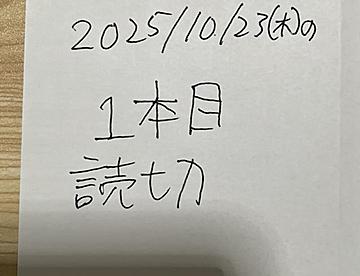 2025/10/23(木)の
1本目
読切